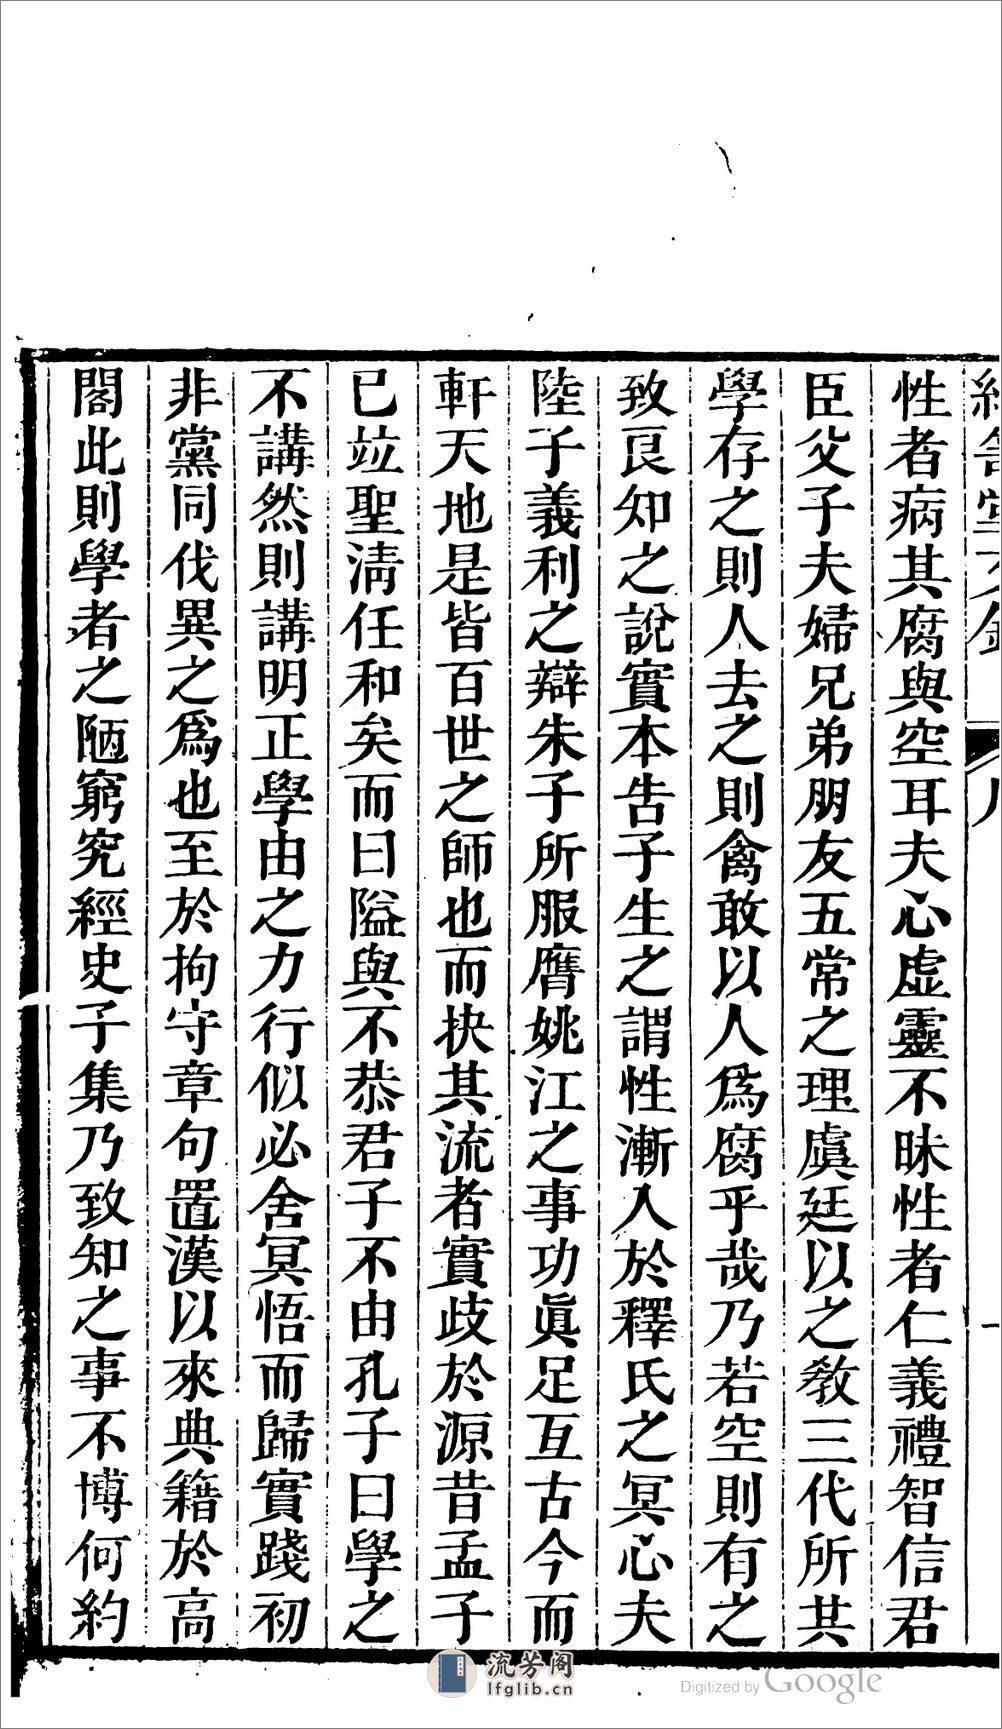 性者病其腐與空耳夫心虛靈不昧性者仁義禮智信君
臣父子夫婦兄弟朋友五常之理虞廷以之敎三代所其
學存之則人去之則禽敢以人爲腐乎哉乃若空則有之
致良知之說實本告子生之謂性漸入於釋氏之冥心夫
陸子義利之辯朱子所服膺姚江之事功眞足亙古今而
軒天地是皆百世之師也而抉其流者實歧於源昔孟子
已竝聖淸任和矣而曰隘與不恭君子不由孔子曰學之
不講然則講明正學由之力行似必舍冥悟而歸實踐初
非黨同伐異之爲也至於拘守章句置漢以來典籍於高
閣此則學者之陋窮究經史子集乃致知之事不博何約
流芳阁
lfglib.cn
Digitized by Google